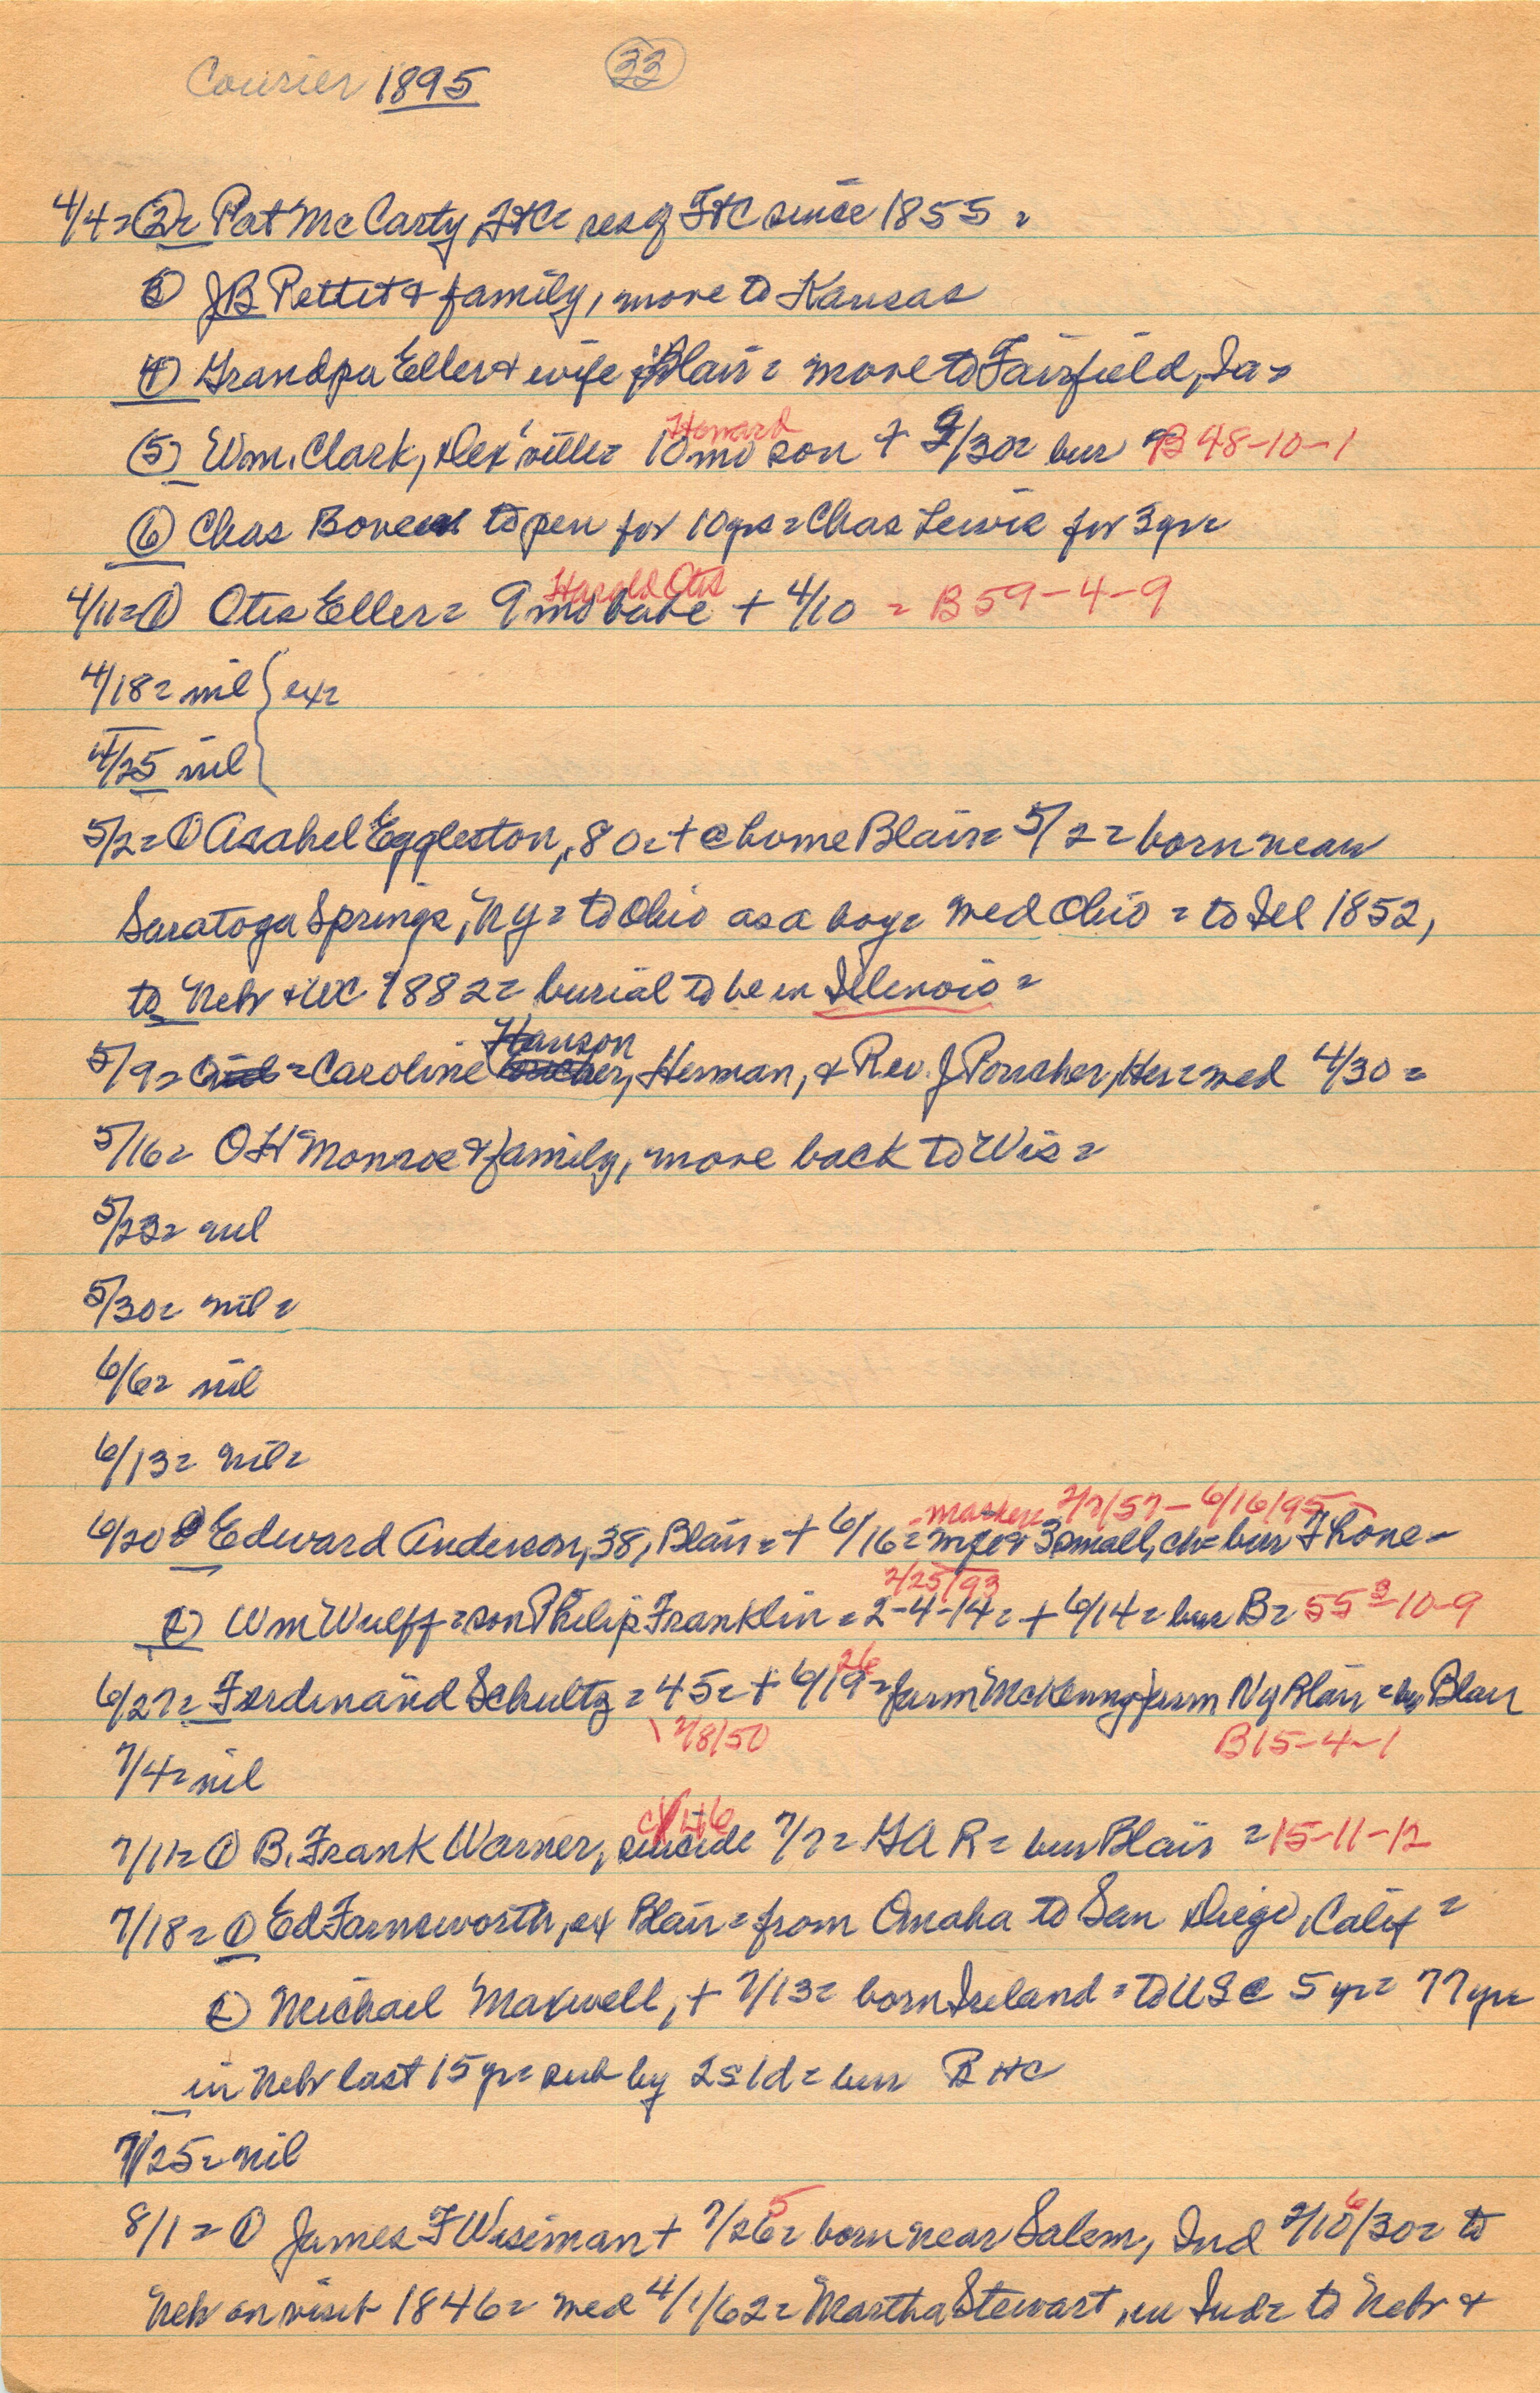 Courier 1895 33
4/4= 2= Pat McCarty, FtC= res of FtC since 1855 =
3 JB Pettit & family, move to Kansas
4 Grandpa Eller & wife, Blair = move to Fairfield, Ia =
Howard
5 Wm. Clark, DeS'ville= 10 mo son + 3/30= bur B 48-10-1
6 Chas to pen for 10 yrs = Chas Lewis for 3 yr=
Harold Otis
4/11= 1 Otis Eller= 9 mo babe + 4/10 = B 59-4-9
4/18= nil ex=
4/25 nil
5/2= 1 Asahel Eggleston, 80= + @ home Blair= 5/2 = born near
Saratoga Springs, NY = to Ohio as a boy= med Ohio = to Ill 1852,
to Nebr & WC 1882= burial to be in Illinois =
Hanson
5/9= nil = Caroline Herman, & Rev. J Poucher, Her= med 4/30 =
5/16= OH Monroe & family, move back to Wis =
5/23= nil
5/30= nil =
6/6= nil
6/13= nil=
marker 2/7/57 - 6/16/95
6/20 1 Edward Anderson, 38, Blair = + 6/16 = wife & 3 small ch= bur Fhone=
2/25/93
2 Wm Wulff = son Philip Franklin = 2-4-14= + 6/14 = bur B= 55-10-9
26
6/27= Ferdinand Schultz = 45= + 6/19 = farm McKenney farm N of Blair = bur Blair
2/8/50 B15-4-1
7/4= nil
c/46
7/11= 1 B. Frank Warner, suicide 7/7 = GAR= bur Blair = 15-11-12
7/18= 1 Ed Farnsworth, ex Blair = from Omaha to San Diego, Calif =
2 Michael Maxwell, + 7/13= born Ireland = to US @ 5 yr= 77 yr=
in Nebr last 15 yr= sub by 2s 1d = bur B HC
7/25= nil
5 6
8/1 = 1 James F Wiseman + 7/26= born near Salem, Ind 2/10/30= to
Nebr on visit 1846= med 4/1/62= Martha Stewart, in Ind= to Nebr &